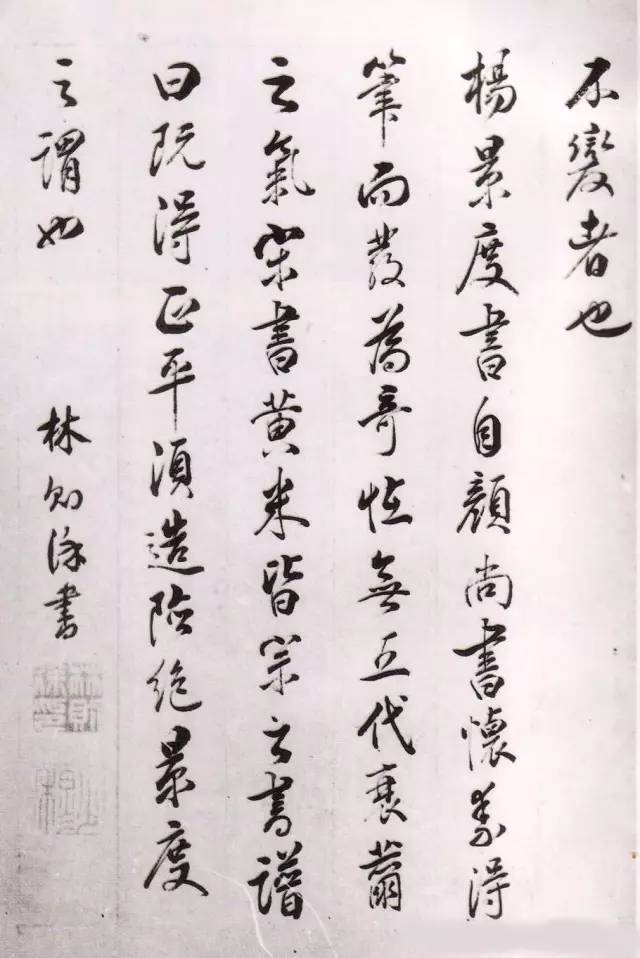 不變者也
楊景度書自顏尚書懷素得
筆而發為奇恠無五代衰薾
之氣宋書黃米皆宗之書譜
曰既得正平須造險絕景度
之謂也
林則徐書